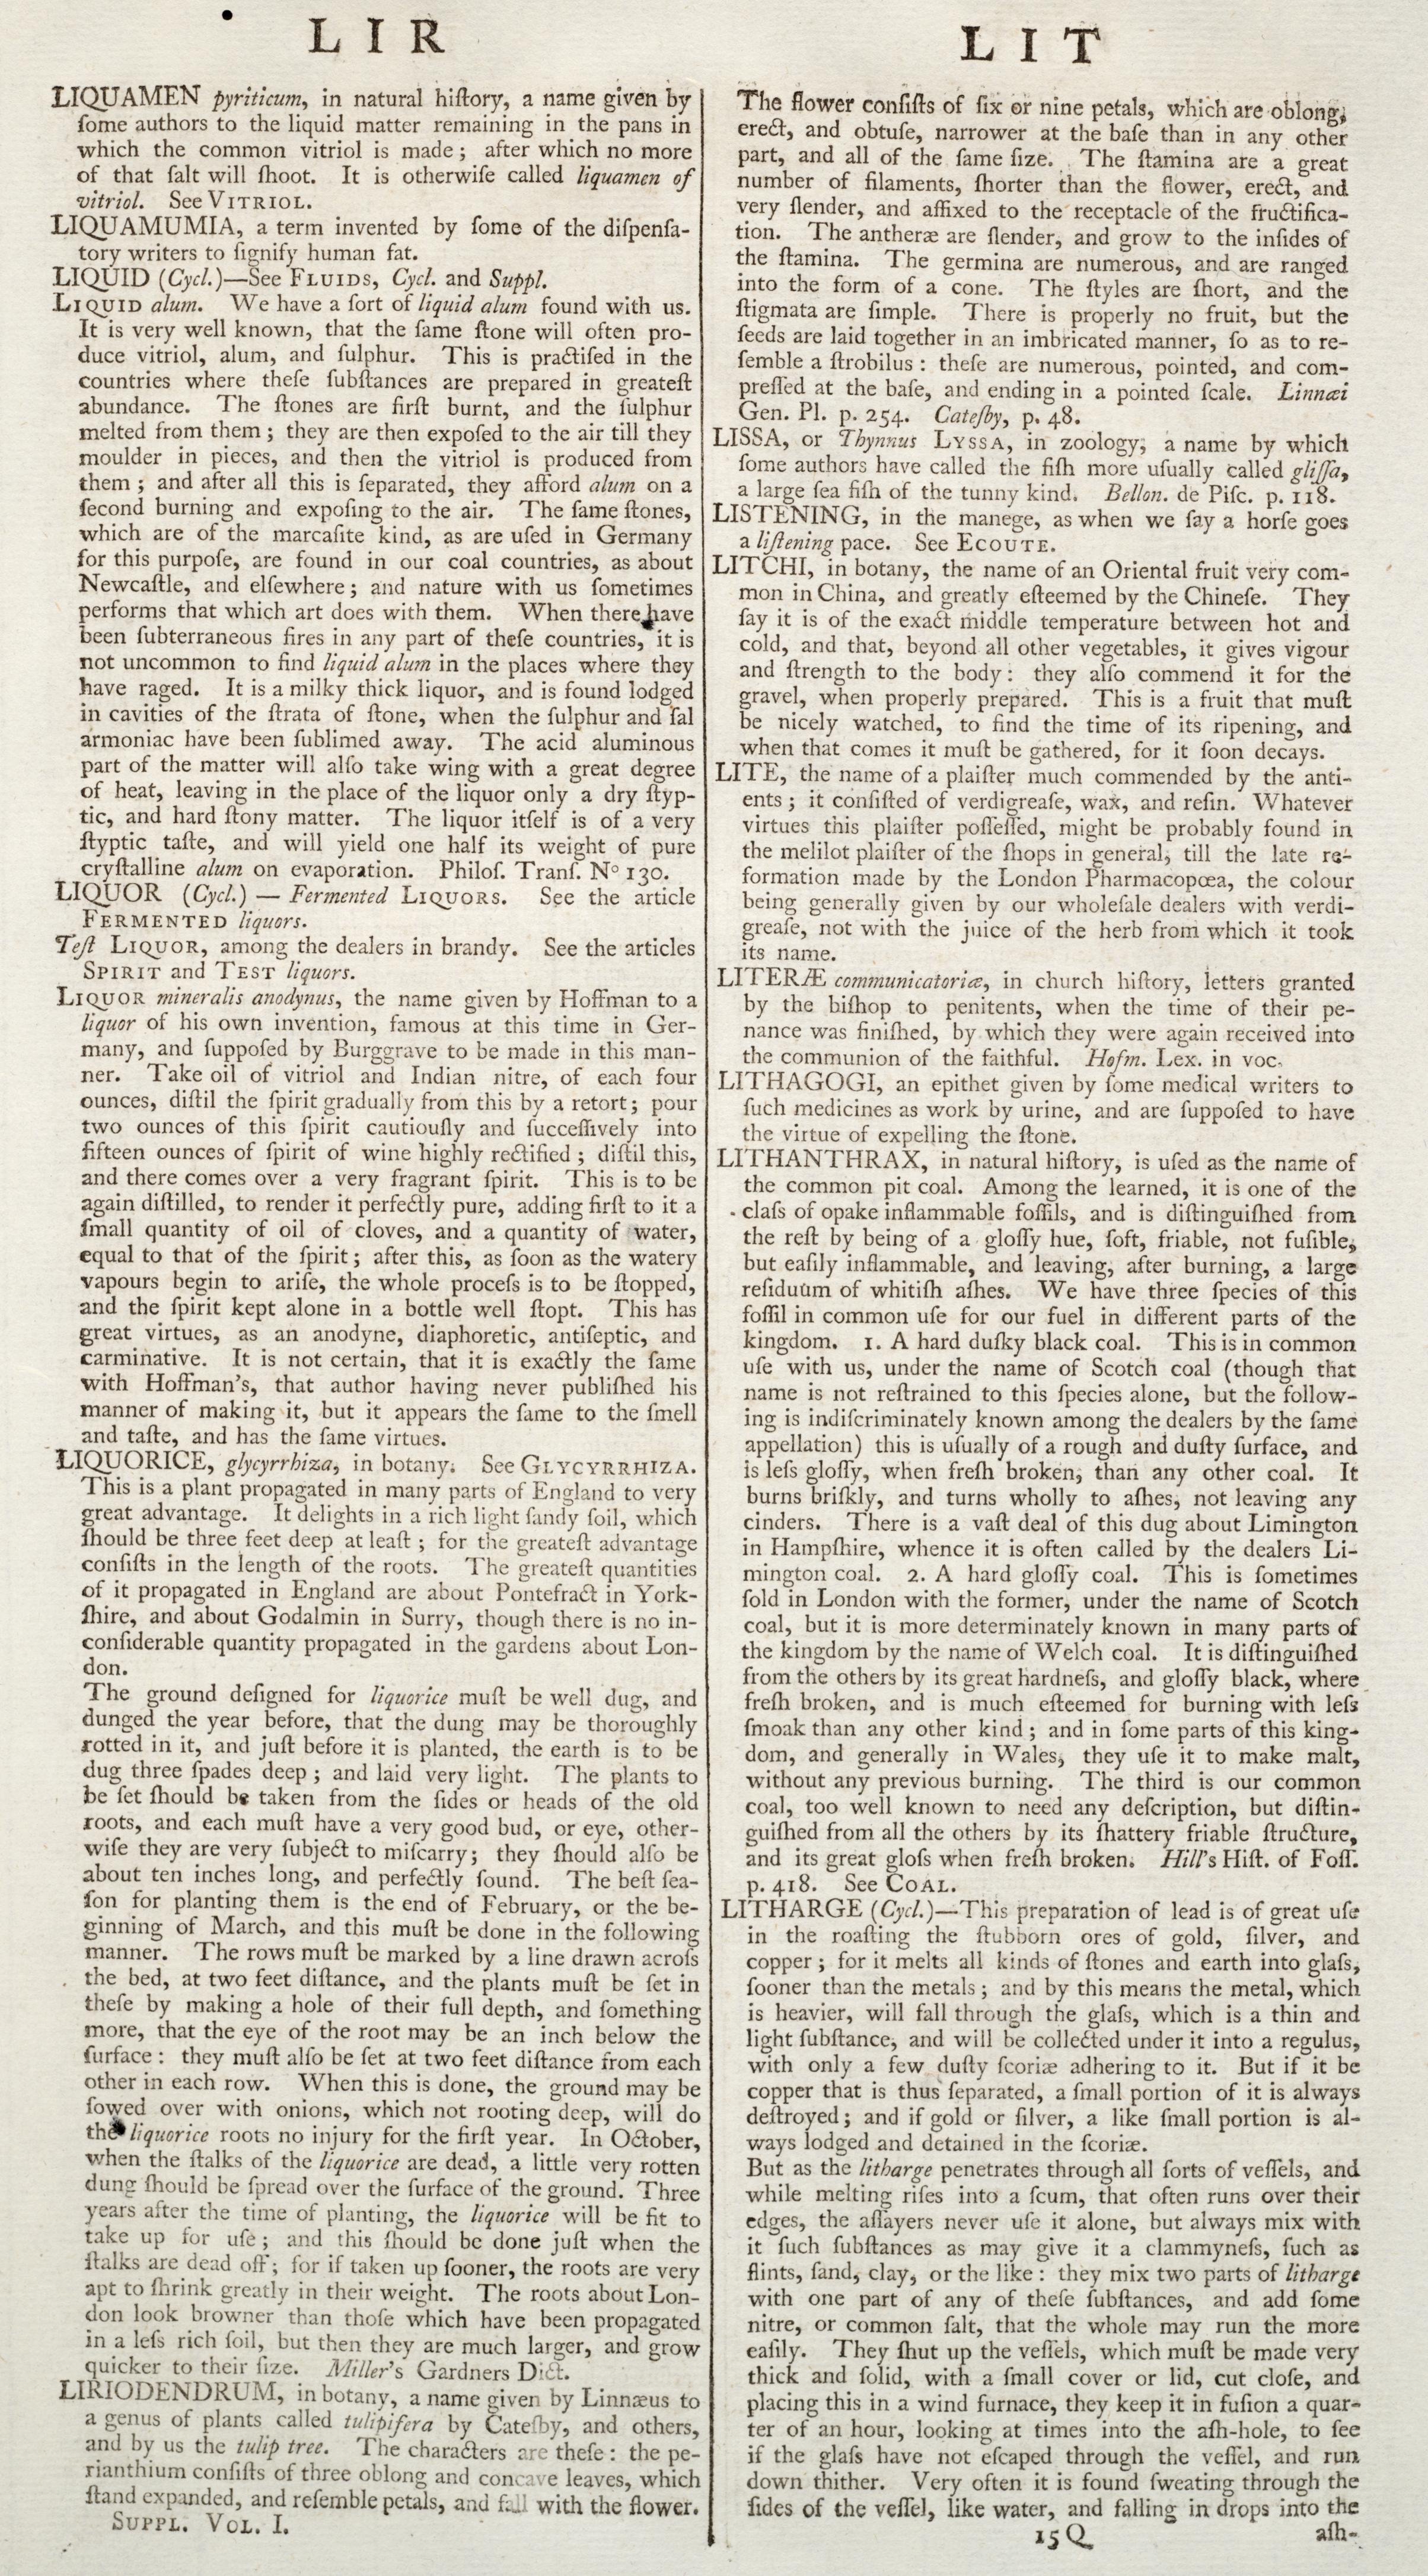 LIR
LIQUAMEN pyriticum, in natural hiſtory, a name given by
ſome authors to the liquid matter remaining in the pans in
which the common vitriol is made; after which no more
of that ſalt will ſhoot. It is otherwiſe called liquamen of
vitriol. See VITRIOL.
LIQUAMUMIA, a term invented by ſome of the diſpenſa-
tory writers to ſignify human fat.
LIQUID (Cycl.)—See FLUIDS, Cycl. and Suppl.
LIQUID alum. We have a ſort of liquid alum found with us.
It is very well known, that the ſame ſtone will often pro-
duce vitriol, alum, and ſulphur. This is practiſed in the
countries where theſe ſubſtances are prepared in greateſt
abundance. The ſtones are firſt burnt, and the ſulphur
melted from them; they are then expoſed to the air till they
moulder in pieces, and then the vitriol is produced from
them; and after all this is ſeparated, they afford alum on a
ſecond burning and expoſing to the air. The ſame ſtones,
which are of the marcaſite kind, as are uſed in Germany
for this purpoſe, are found in our coal countries, as about
Newcaſtle, and elſewhere; and nature with us ſometimes
performs that which art does with them. When there have
been ſubterraneous fires in any part of theſe countries, it is
not uncommon to find liquid alum in the places where they
have raged. It is a milky thick liquor, and is found lodged
in cavities of the ſtrata of ſtone, when the ſulphur and ſal
armoniac have been ſublimed away. The acid aluminous
part of the matter will alſo take wing with a great degree
of heat, leaving in the place of the liquor only a dry ſtyp-
tic, and hard ſtony matter. The liquor itſelf is of a very
ſtyptic taſte, and will yield one half its weight of pure
cryſtalline alum on evaporation. Philoſ. Tranſ. Nº 130.
LIQUOR (Cycl.) — Fermented LIQUORS. See the article
FERMENTED liquors.
Teſt LIQUOR, among the dealers in brandy. See the articles
SPIRIT and TEST liquors.
LIQUOR mineralis anodynus, the name given by Hoffman to a
liquor of his own invention, famous at this time in Ger-
many, and ſuppoſed by Burggrave to be made in this man-
ner. Take oil of vitriol and Indian nitre, of each four
ounces, diſtil the ſpirit gradually from this by a retort; pour
two ounces of this ſpirit cautiouſly and ſucceſſively into
fifteen ounces of ſpirit of wine highly rectified; diſtil this,
and there comes over a very fragrant ſpirit. This is to be
again diſtilled, to render it perfectly pure, adding firſt to it a
ſmall quantity of oil of cloves, and a quantity of water,
equal to that of the ſpirit; after this, as ſoon as the watery
vapours begin to ariſe, the whole proceſs is to be ſtopped,
and the ſpirit kept alone in a bottle well ſtopt. This has
great virtues, as an anodyne, diaphoretic, antiſeptic, and
carminative. It is not certain, that it is exactly the ſame
with Hoffman's, that author having never publiſhed his
manner of making it, but it appears the ſame to the ſmell
and taſte, and has the ſame virtues.
LIQUORICE, glycyrrhiza, in botany. See GLYCYRRHIZA.
This is a plant propagated in many parts of England to very
great advantage. It delights in a rich light ſandy ſoil, which
ſhould be three feet deep at leaſt; for the greateſt advantage
conſiſts in the length of the roots. The greateſt quantities
of it propagated in England are about Pontefract in York-
ſhire, and about Godalmin in Surry, though there is no in-
conſiderable quantity propagated in the gardens about Lon-
don.
The ground deſigned for liquorice muſt be well dug, and
dunged the year before, that the dung may be thoroughly
rotted in it, and juſt before it is planted, the earth is to be
dug three ſpades deep; and laid very light. The plants to
be ſet ſhould be taken from the ſides or heads of the old
roots, and each muſt have a very good bud, or eye, other-
wiſe they are very ſubject to miſcarry; they ſhould alſo be
about ten inches long, and perfectly ſound. The beſt ſea-
ſon for planting them is the end of February, or the be-
ginning of March, and this muſt be done in the following
manner. The rows muſt be marked by a line drawn acroſs
the bed, at two feet diſtance, and the plants muſt be ſet in
theſe by making a hole of their full depth, and ſomething
more, that the eye of the root may be an inch below the
ſurface: they muſt alſo be ſet at two feet diſtance from each
other in each row. When this is done, the ground may be
ſowed over with onions, which not rooting deep, will do
the liquorice roots no injury for the firſt year. In October,
when the ſtalks of the liquorice are dead, a little very rotten
dung ſhould be ſpread over the ſurface of the ground. Three
years after the time of planting, the liquorice will be fit to
take up for uſe; and this ſhould be done juſt when the
ſtalks are dead off; for if taken up ſooner, the roots are very
apt to ſhrink greatly in their weight. The roots about Lon-
don look browner than thoſe which have been propagated
in a leſs rich ſoil, but then they are much larger, and grow
quicker to their ſize. Miller's Gardners Dict.
LIRIODENDRUM, in botany, a name given by Linnæus to
a genus of plants called tulipifera by Cateſby, and others,
and by us the tulip tree. The characters are theſe: the pe-
rianthium conſiſts of three oblong and concave leaves, which
ſtand expanded, and reſemble petals, and fall with the flower.
SUPPL. VOL. I.
LIT
The flower conſiſts of ſix or nine petals, which are oblong,
erect, and obtuſe, narrower at the baſe than in any other
part, and all of the ſame ſize. The ſtamina are a great
number of filaments, ſhorter than the flower, erect, and
very ſlender, and affixed to the receptacle of the fructifica-
tion. The antheræ are ſlender, and grow to the inſides of
the ſtamina. The germina are numerous, and are ranged
into the form of a cone. The ſtyles are ſhort, and the
ſtigmata are ſimple. There is properly no fruit, but the
ſeeds are laid together in an imbricated manner, ſo as to re-
ſemble a ſtrobilus: theſe are numerous, pointed, and com-
preſſed at the baſe, and ending in a pointed ſcale. Linnæi
Gen. Pl. p. 254. Cateſby, p. 48.
LISSA, or Thynnus LYSSA, in zoology, a name by which
ſome authors have called the fiſh more uſually called gliſſa,
a large ſea fiſh of the tunny kind. Bellon. de Piſc. p. 118.
LISTENING, in the manege, as when we ſay a horſe goes
a liſtening pace. See ECOUTE.
LITCHI, in botany, the name of an Oriental fruit very com-
mon in China, and greatly eſteemed by the Chineſe. They
ſay it is of the exact middle temperature between hot and
cold, and that, beyond all other vegetables, it gives vigour
and ſtrength to the body: they alſo commend it for the
gravel, when properly prepared. This is a fruit that muſt
be nicely watched, to find the time of its ripening, and
when that comes it muſt be gathered, for it ſoon decays.
LITE, the name of a plaiſter much commended by the anti-
ents; it conſiſted of verdigreaſe, wax, and reſin. Whatever
virtues this plaiſter poſſeſſed, might be probably found in
the melilot plaiſter of the ſhops in general, till the late re-
formation made by the London Pharmacopœa, the colour
being generally given by our wholeſale dealers with verdi-
greaſe, not with the juice of the herb from which it took
its name.
LITERÆ communicatoriæ, in church hiſtory, letters granted
by the biſhop to penitents, when the time of their pe-
nance was finiſhed, by which they were again received into
the communion of the faithful. Hofm. Lex. in voc.
LITHAGOGI, an epithet given by ſome medical writers to
ſuch medicines as work by urine, and are ſuppoſed to have
the virtue of expelling the ſtone.
LITHANTHRAX, in natural hiſtory, is uſed as the name of
the common pit coal. Among the learned, it is one of the
claſs of opake inflammable foſſils, and is diſtinguiſhed from
the reſt by being of a gloſſy hue, ſoft, friable, not fuſible,
but eaſily inflammable, and leaving, after burning, a large
reſiduum of whitiſh aſhes. We have three ſpecies of this
foſſil in common uſe for our fuel in different parts of the
kingdom. 1. A hard duſky black coal. This is in common
uſe with us, under the name of Scotch coal (though that
name is not reſtrained to this ſpecies alone, but the follow-
ing is indiſcriminately known among the dealers by the ſame
appellation) this is uſually of a rough and duſty ſurface, and
is leſs gloſſy, when freſh broken, than any other coal. It
burns briſkly, and turns wholly to aſhes, not leaving any
cinders. There is a vaſt deal of this dug about Limington
in Hampſhire, whence it is often called by the dealers Li-
mington coal. 2. A hard gloſſy coal. This is ſometimes
ſold in London with the former, under the name of Scotch
coal, but it is more determinately known in many parts of
the kingdom by the name of Welch coal. It is diſtinguiſhed
from the others by its great hardneſs, and gloſſy black, where
freſh broken, and is much eſteemed for burning with leſs
ſmoak than any other kind; and in ſome parts of this king-
dom, and generally in Wales, they uſe it to make malt,
without any previous burning. The third is our common
coal, too well known to need any deſcription, but diſtin-
guiſhed from all the others by its ſhattery friable ſtructure,
and its great gloſs when freſh broken. Hill's Hiſt. of Foſſ.
p. 418. See COAL.
LITHARGE (Cycl.)—This preparation of lead is of great uſe
in the roaſting the ſtubborn ores of gold, ſilver, and
copper; for it melts all kinds of ſtones and earth into glaſs,
ſooner than the metals; and by this means the metal, which
is heavier, will fall through the glaſs, which is a thin and
light ſubſtance, and will be collected under it into a regulus,
with only a few duſty ſcoriæ adhering to it. But if it be
copper that is thus ſeparated, a ſmall portion of it is always
deſtroyed; and if gold or ſilver, a like ſmall portion is al-
ways lodged and detained in the ſcoriæ.
But as the litharge penetrates through all ſorts of veſſels, and
while melting riſes into a ſcum, that often runs over their
edges, the aſſayers never uſe it alone, but always mix with
it ſuch ſubſtances as may give it a clammyneſs, ſuch as
flints, ſand, clay, or the like: they mix two parts of litharge
with one part of any of theſe ſubſtances, and add ſome
nitre, or common ſalt, that the whole may run the more
eaſily. They ſhut up the veſſels, which muſt be made very
thick and ſolid, with a ſmall cover or lid, cut cloſe, and
placing this in a wind furnace, they keep it in fuſion a quar-
ter of an hour, looking at times into the aſh-hole, to ſee
if the glaſs have not eſcaped through the veſſel, and run
down thither. Very often it is found ſweating through the
ſides of the veſſel, like water, and falling in drops into the
15 Q
aſh-